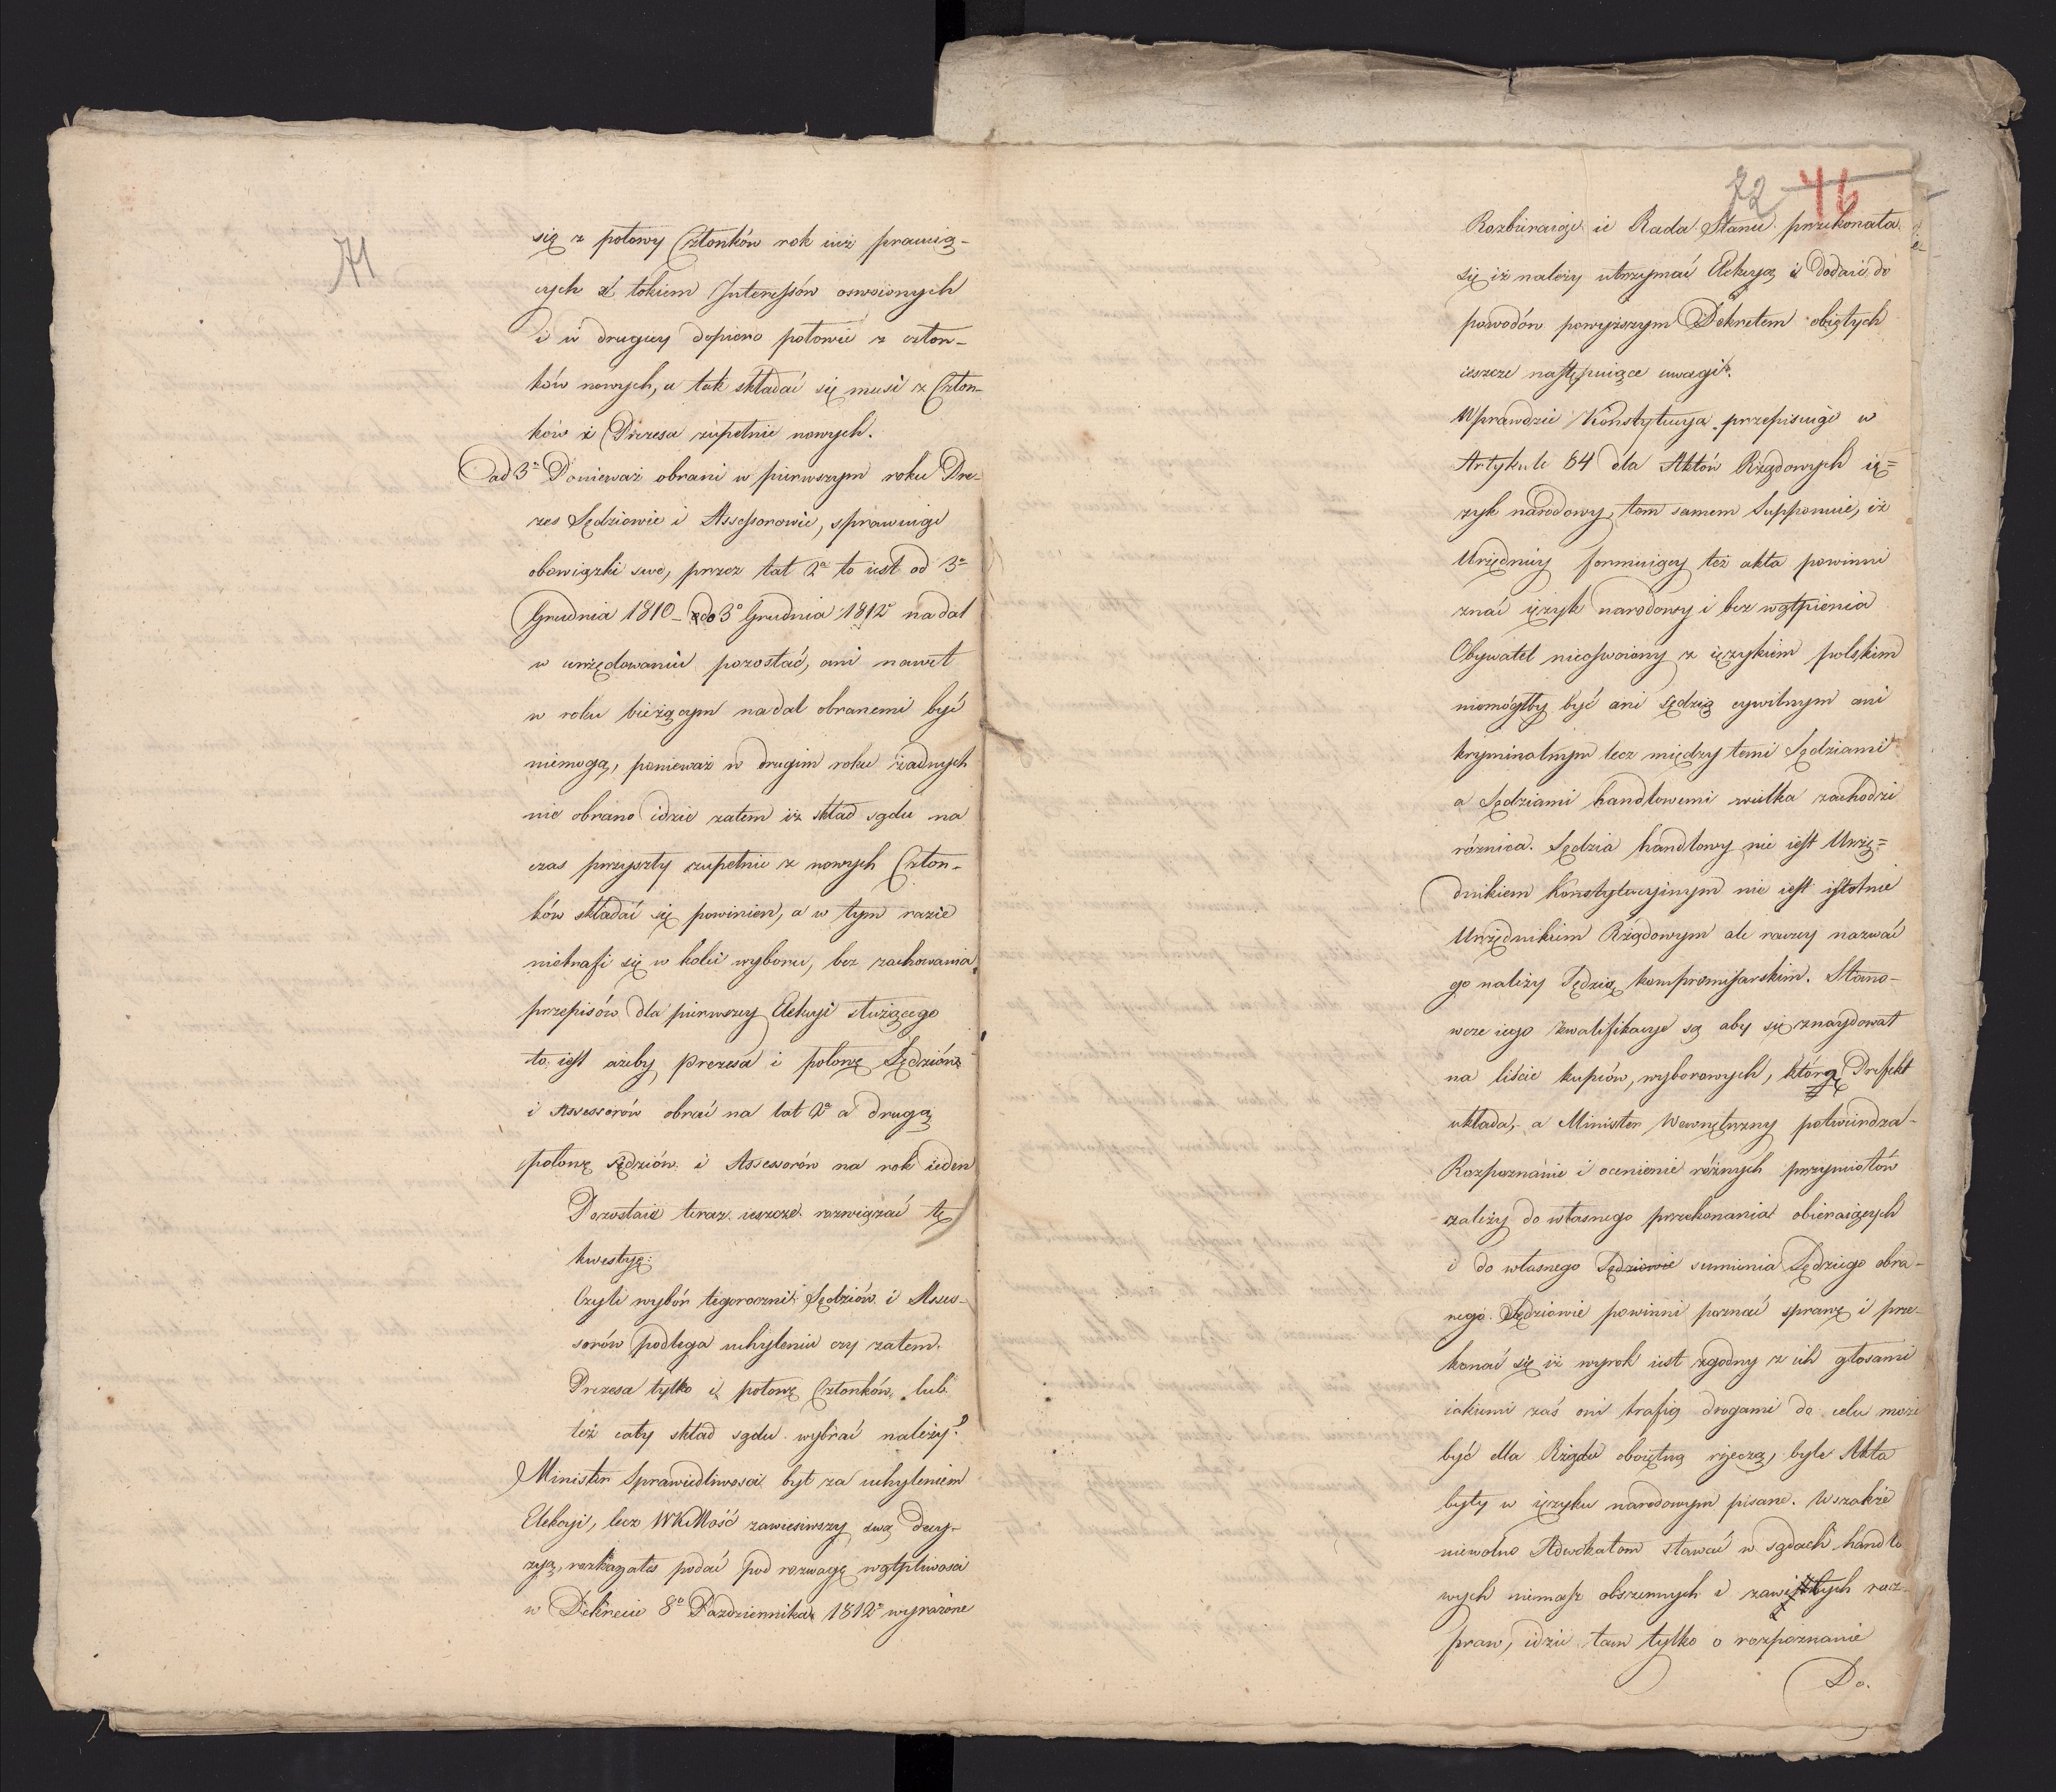 71
się z połowy Członków rok iuż pracuią-
cych z tokiem Interessów oswoionych
i w drugiey dopiero połowie z człon-
ków nowych, a tak składać się musi z Człon-
ków i Prezesa zupełnie nowych.
ad 3º Ponieważ obrani w pierwszym roku Pre-
zes Sędziowie i Assessorowie, sprawuią
obowiązki swe, przez lat 2ª to iest od 3º
Grudnia 1810 - do 3º Grudnia 1812º nadal
w urzędowaniu pozostać, ani nawet
w roku bieżącym nadal obranemi być
niemogą, ponieważ w drugim roku żadnych
nie obrano idzie zatem iż skład sądu na
czas przyszły zupełnie z nowych Człon-
ków składać się powinien, a w tym razie
nietrafi się w kolei wyboru, bez zachowania
przepisów dla pierwszey Elekcyi służącego
to iest ażeby Prezesa i połowę Sędziów
i Assessorów obrać na lat 2ª a drugą
połowę sędziów i Assessorów na rok ieden
Pozostaie teraz ieszcze rozwiązać tę
kwestyę:
Czyli wybór tegoroczni Sędziów i Asses-
sorów podlega uchyleniu czy zatem
Prezesa tylko i połowę Członków, lub
też cały skład sądu wybrać należy?
Minister Sprawiedliwości był za uchyleniem
Elekcyi, lecz WKMość zawiesiwszy swą decy-
zyą, rozkazałeś podać pod rozwagę wątpliwości
w Dekrecie 8º Października 1812º wyrażone
72 46
Rozbieraiąc ie Rada Stanu przekonała
się iż należy utrzymać Elekcyą i dodaie do
powodów powyższym Dekretem obiętych
ieszcze następuiące uwagi.
Wprawdzie Konstytucya przepisuiąc w
Artykule 84 dla Aktów Rządowych ię=
zyk narodowy, tem samem supponuie, iż
Urzędnicy formuiący też akta powinni
znać ięzyk narodowy i bez wątpienia
Obywatel nieoswoiony z ięzykiem polskim
niemógłby być ani sędzią cywilnym ani
kryminalnym lecz między temi Sędziami
a Sędziami handlowemi wielka zachodzi
różnica. Sędzia handlowy nie iest Urzę=
dnikiem Konstytucyinym nie iest istotnie
Urzędnikiem Rządowym ale raczey nazwać
go należy Sędzią kompromissarskim. Stano-
wcze iego kwalifikacye są aby się znaydował
na liście kupców, wyborowych, którą Prefekt
układa, a Minister Wewnętrzny potwierdza-
Rozpoznanie i ocenienie różnych przymiotów
należy do własnego przekonania obieraiących
i do własnego Sędziowie sumienia Sędziego obra-
nego. Sędziowie powinni poznać sprawę i prze-
konać się iż wyrok iest zgodny z ich głosami
iakiemi zaś oni trafią drogami do celu może
być dla Rządu oboiętną rzeczą, byle Akta
były w ięzyku narodowym pisane. Wszakże
niewolno Adwokatom stawać w sądach handlo
wych niemasz obszernych i zawiłych roz-
praw, idzie tam tylko o rozpoznanie
Do.